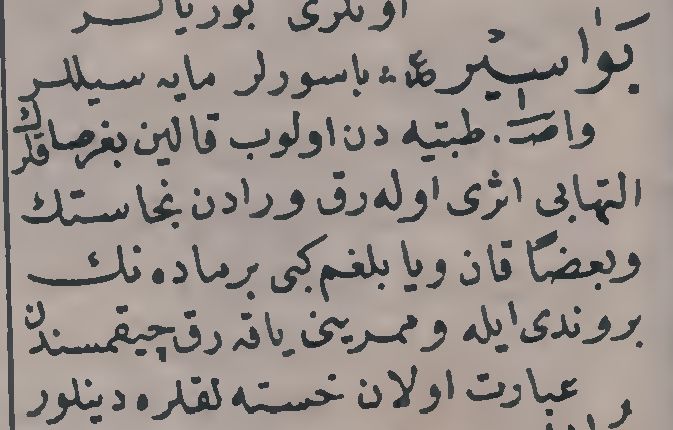 اونلری بوریا
بَواسیر ع باسورلر مایه سیللر
واصـ. طبتیه دن اولوب قالین بغرصاقلرك
التهابی اثری اوله رق ورادن نجاستك
وبعضاً قان ویا بلغم كبی برماده نك
بروندی ایله وممرینی یاقه رق چیقمسندن
عبارت اولان خسته لقلره دینلور